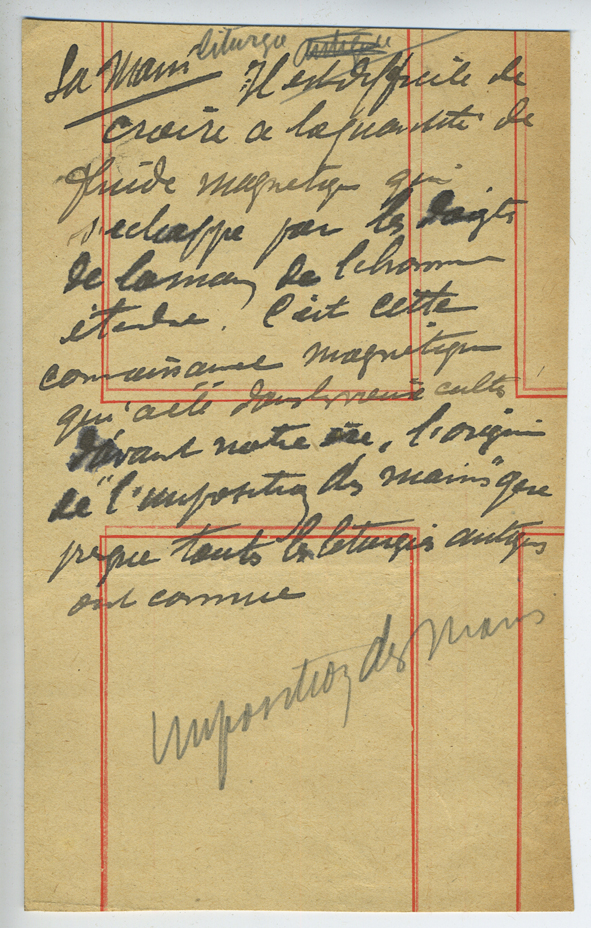 La Main liturgie
Il est difficile de
croire a la quantité de
fluide magnetique qui
s'echappe par les doigts
de la main de l'homme
étendue. C'est cette
connaissance magnétique
qui a été dans les vieux cultes
d'avant notre ère, l'origine
de "l'imposition des mains" que
presque toutes les liturgies antiques
ont connue
Imposition des Mains